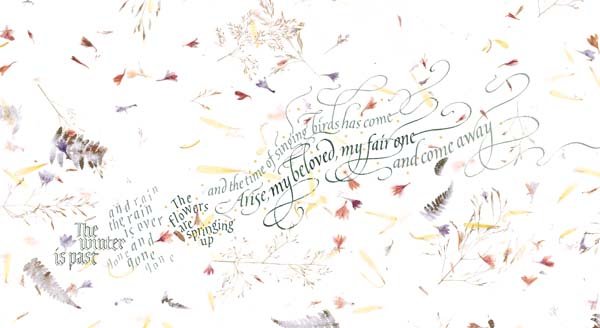 The
winter
is past
and rain
the rain
is over
and
gone
The
flowers
are
springing
up
and the time of singing birds has come
Arise, my beloved, my fair one
and come away